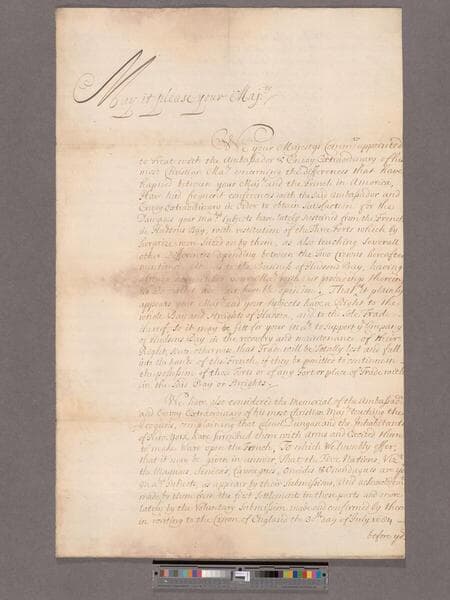 May it please your Maj.ty
We your Majestys Comm.rs appointed
to treat with the Ambassador & Envoy Extraordinary of his
most Christian Ma.ty concerning the differences that have
hapned between your Ma.ty and the French in America,
Have had frequent conferences with the said Ambassador and
Envoy Extraordinary in order to obtain Satisfaction for the
Damages your Ma.tys Subjects have lately sustained from the French
in Hudsons Bay, with restitution of the Three Forts which by
Surprize were seized on by them, as also touching severall
other differences depending between the two Crowns
the of Hudsons Bay, having
opinion, That it plainly
appears your Ma.ty and your Subjects have a Right to the
whole Bay and Streights of Hudson, and to the Sole Trade
thereof, So it may be fitt for your Ma.ty to Support y.e Company
of Hudsons Bay in the recovery and maintenance of their
Right, since otherwise that Trade will be Totally lost and fall
into the hands of the French, if they be permitted to continue in
the possession of those Forts or of any Fort or place of Trade
in the said Bay or Streights,
We have also considered the Memorial of the Ambassad.r
and Envoy Extraordinary of his most Christian Maj.ty touching the
Iroquois, complaining that Coll. Dungan and the Inhabitants
of New York have furnished them with Arms and Excited them
to make Warr upon the French, To which We humbly offer,
that it may be given in answer, That the Five Nations, Viz.t
the Maquaes, Senecas, Cayouges, Oneides & Onondagues are yo.r
Ma.tys Subjects, as appears by their Submissions, and acknowledgm.ts
made by them from the first Settlement in those parts and more
lately by the Voluntary Submission made and confirmed by them
in writing to the Crown of England the 30.th day of July 1684
before y.e